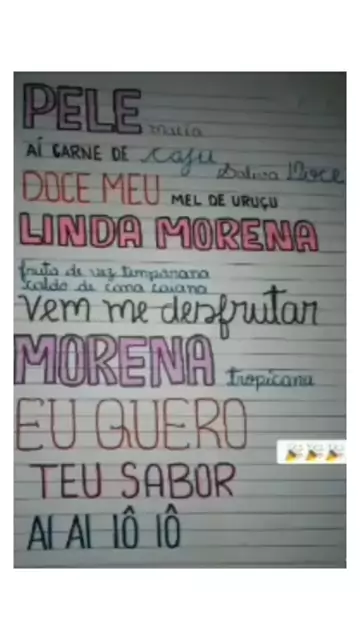 PELE macia
AÍ CARNE DE caju
Saliva Doce
DOCE MEU MEL DE URUÇU
LINDA MORENA
fruta de vez temporana
caldo de cana caiana
Vem me desfrutar
MORENA tropicana
EU QUERO
TEU SABOR
AI AI IÔ IÔ